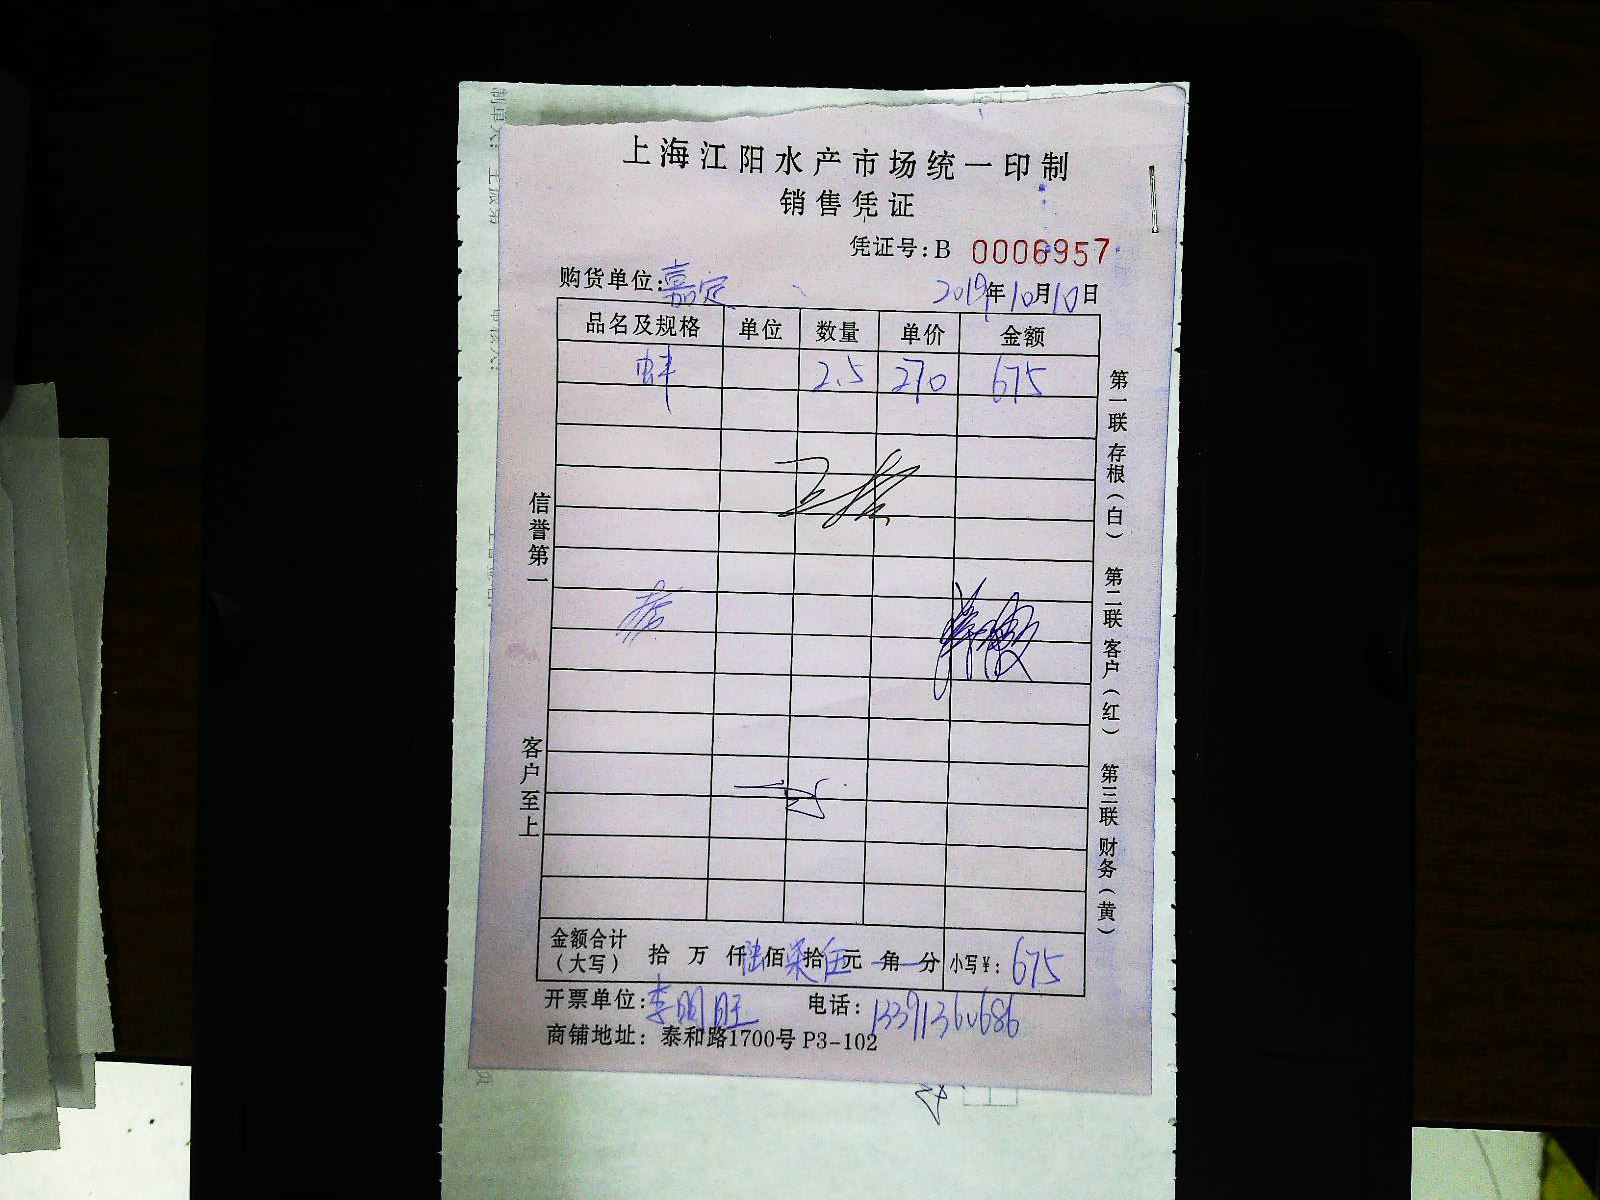 上海江阳水产市场统一印制
销售凭证
凭证号:B 0006957
购货单位:嘉定 2019年10月10日
品名及规格 单位 数量 单价 金额
蚌 2.5 270 675
信誉第一
客户至上
第一联 存根(白) 第二联 客户(红) 第三联 财务(黄)
金额合计(大写) 拾 万 仟陆佰柒拾伍元 角 分 小写¥: 675
开票单位:李明旺 电话:13391360686
商铺地址: 泰和路1700号 P3-102